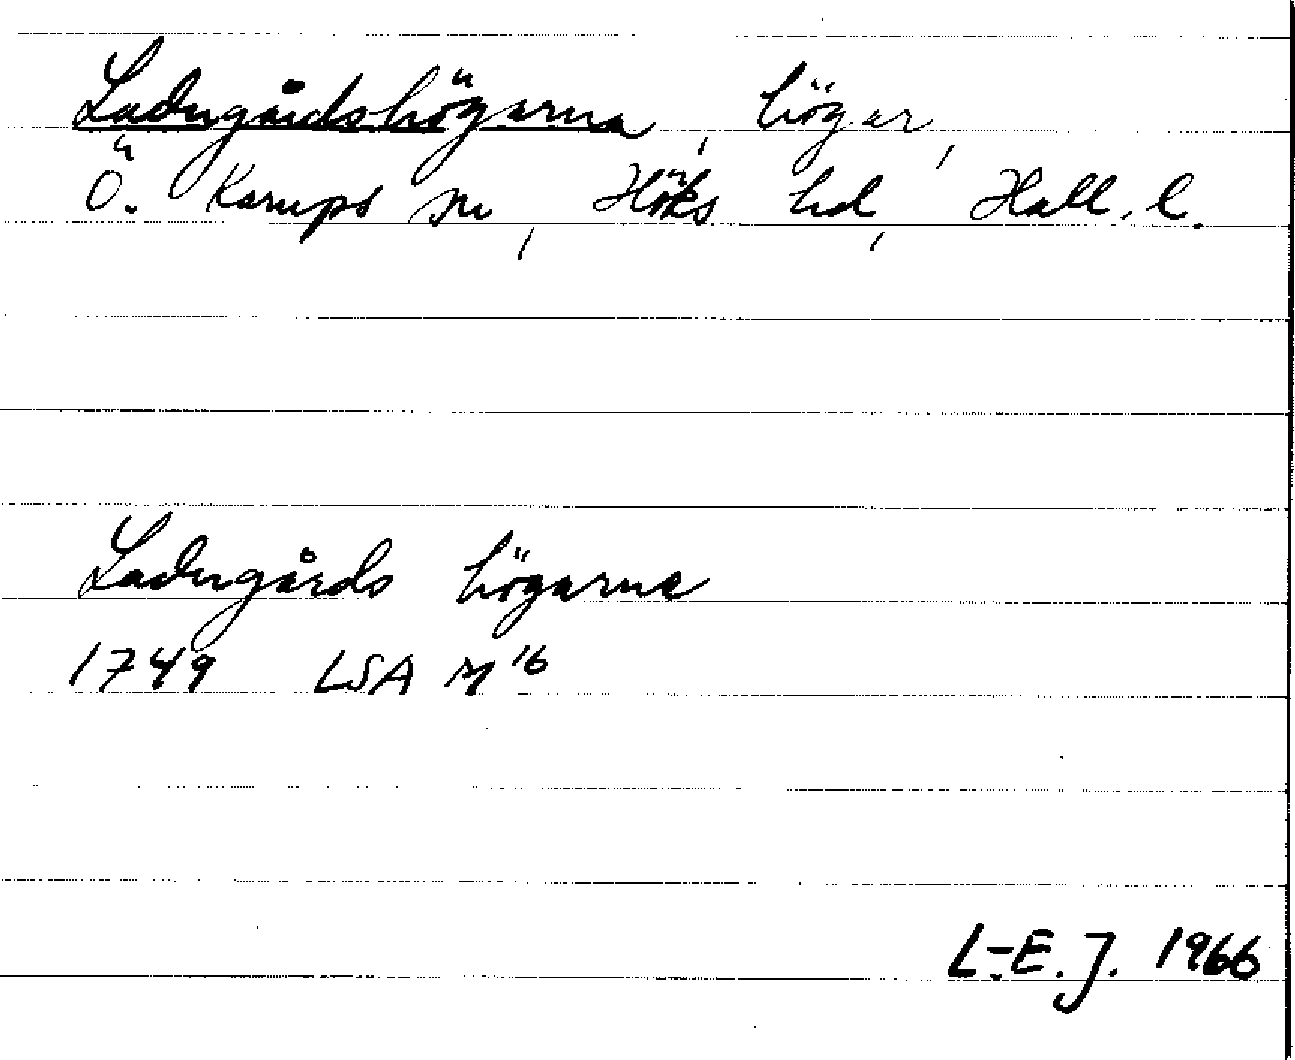 Ladugårdshögarna, högar,
Ö. Karups sn, Höks hd, Hall. l.
Ladugårds högarne
1749 LSA M 16
L-E. J. 1966